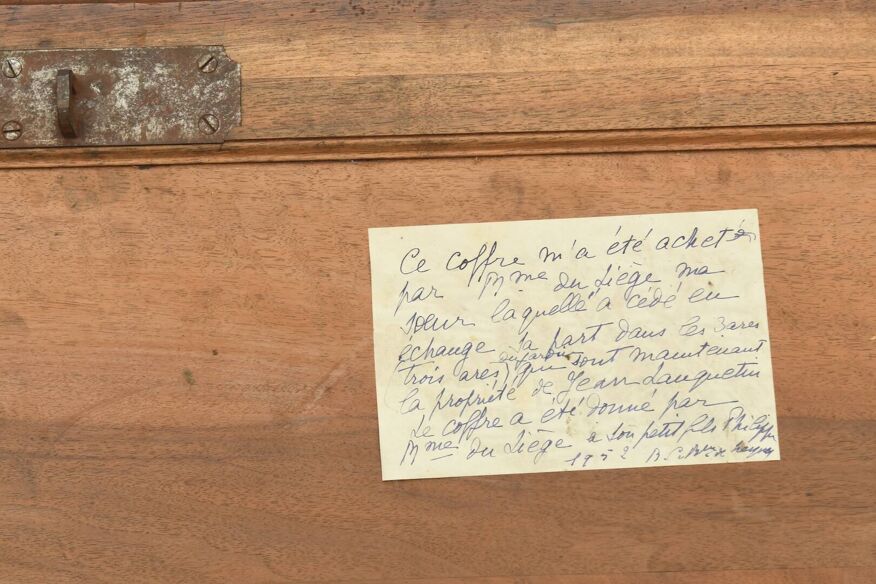 Ce coffre m'a été acheté
par Mme du Liège ma
sœur laquelle a cédé en
échange sa part dans les 3 ares
(trois ares) du jardin qui sont maintenant
la propriété de Jean Lanquetin
Le coffre a été donné par
Mme du Liège à son petit fils Philippe
1952 B.